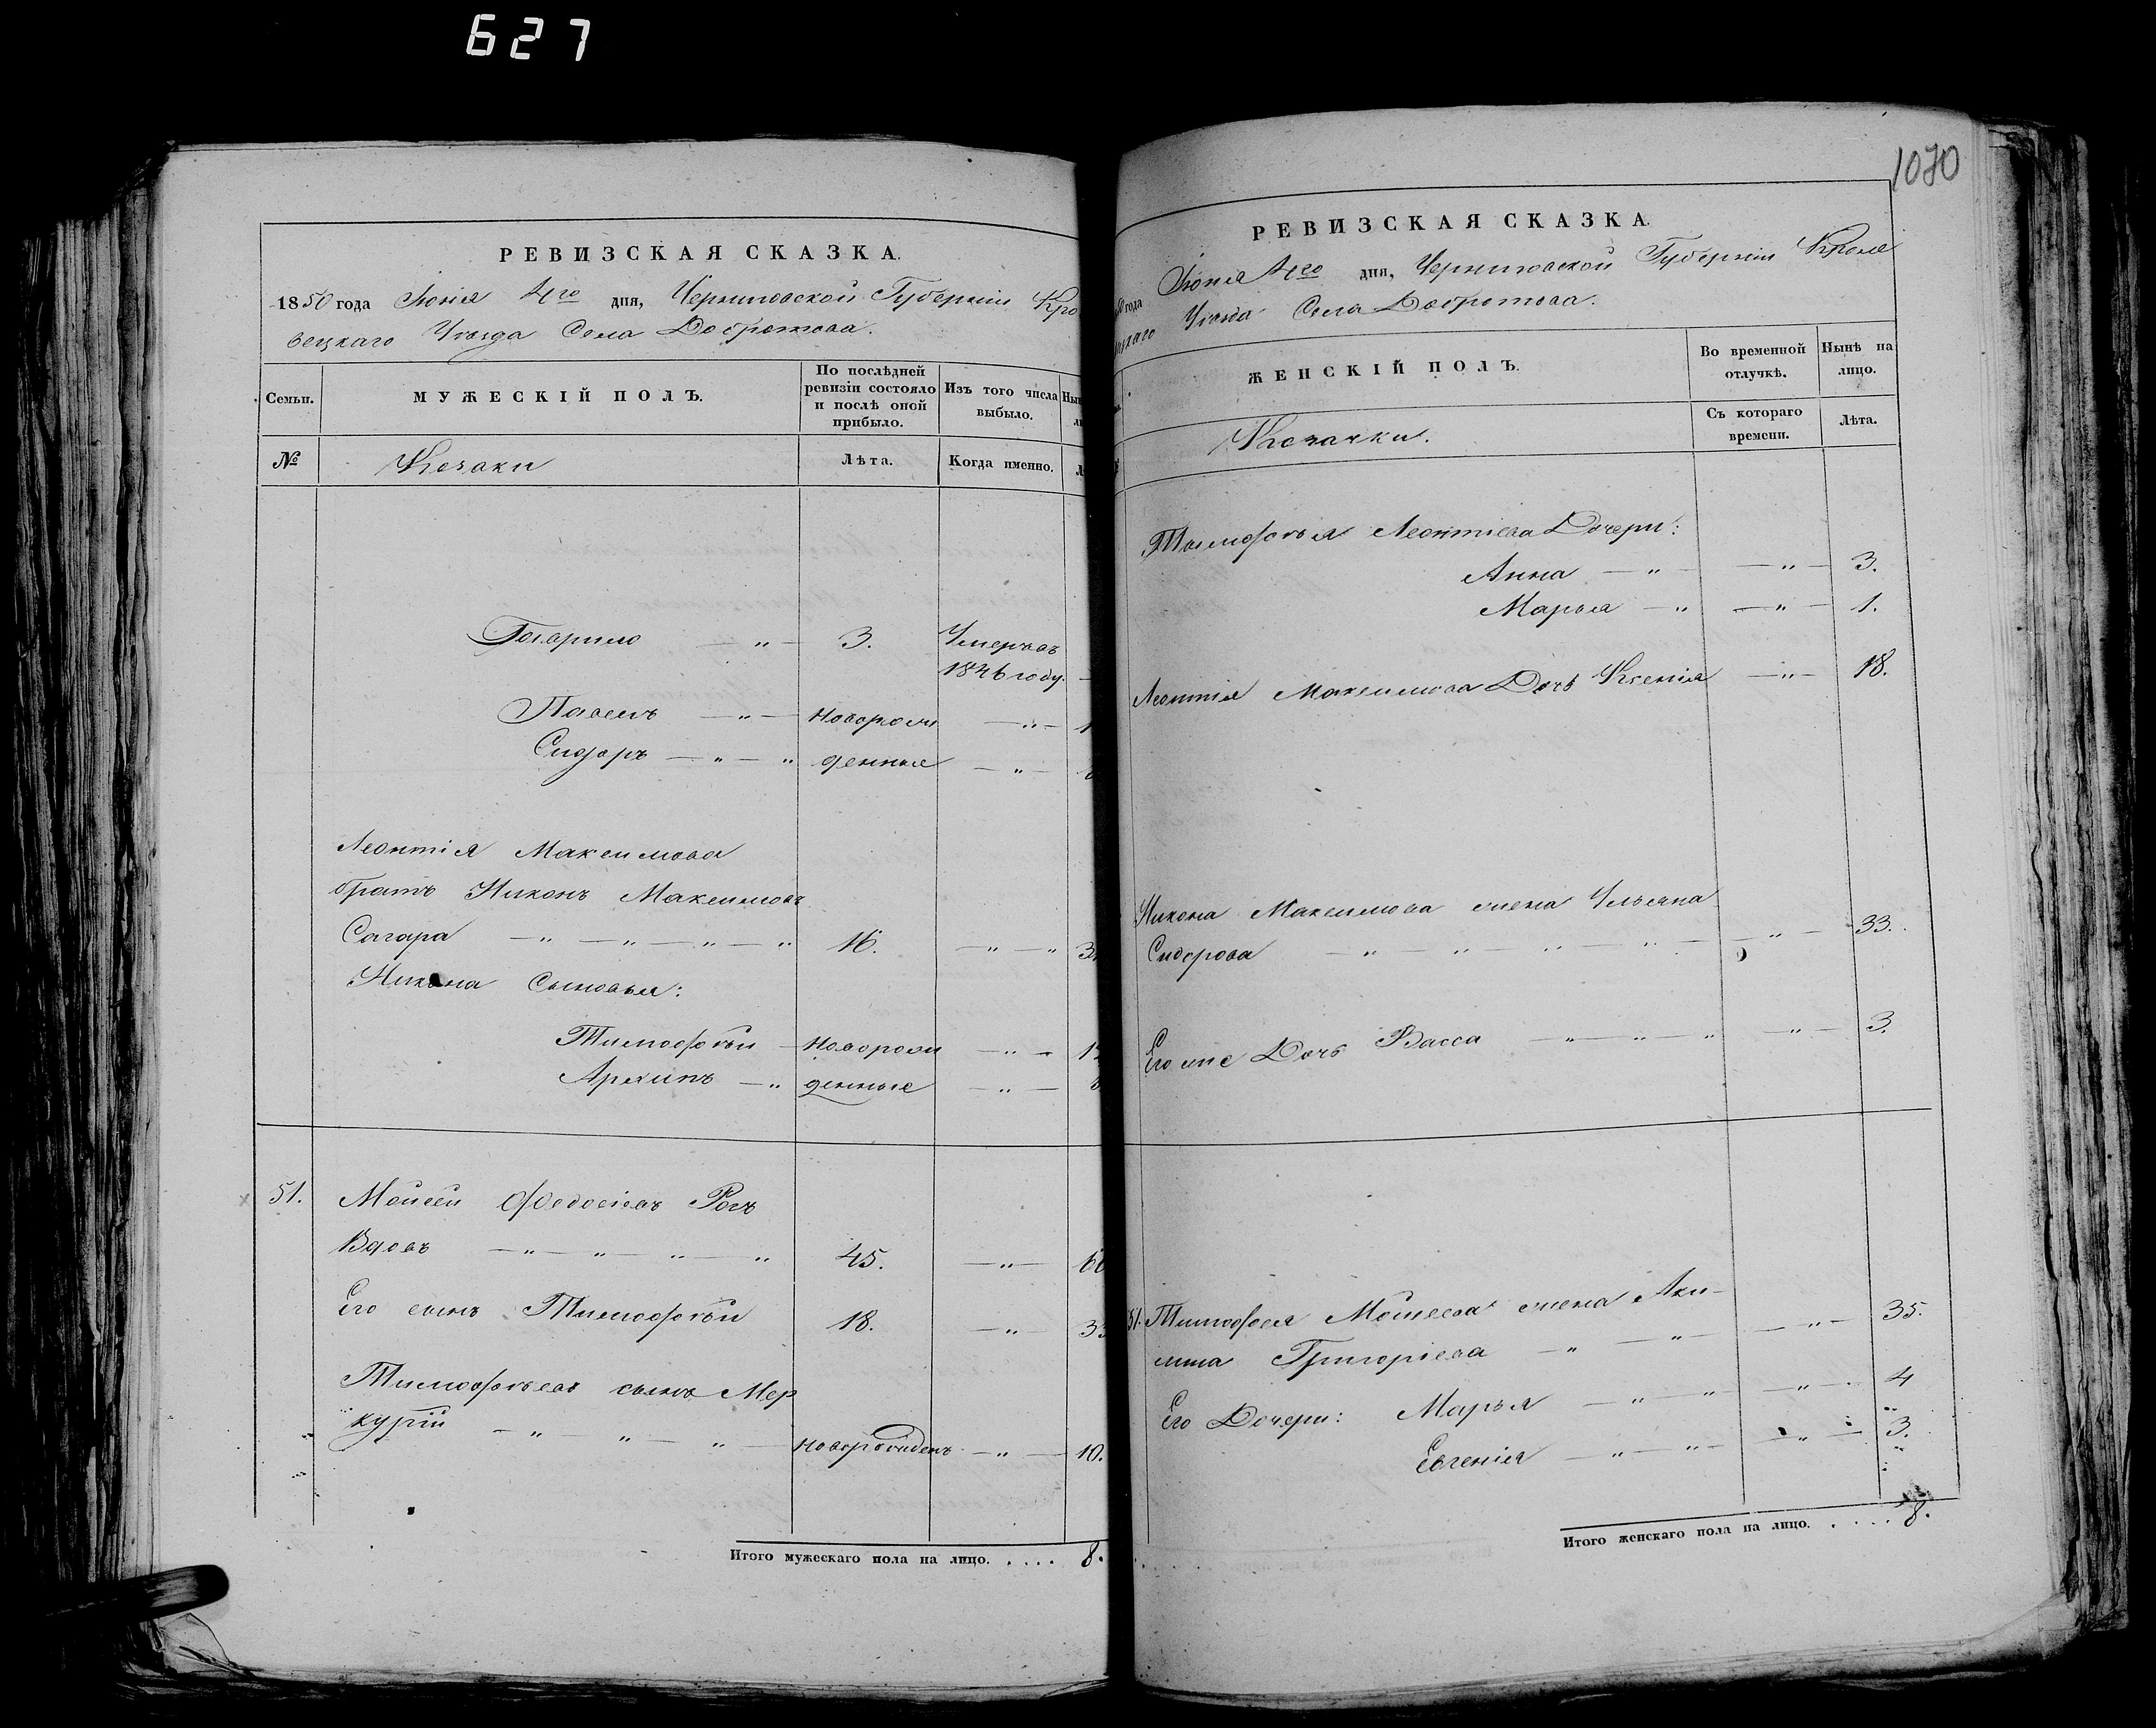 627
1070
РЕВИЗСКАЯ СКАЗКА.
1850 года Іюня 4го дня, Черниговской Губерніи Кро
вецкаго Уѣзда Села Добротова.
Семьи.
МУЖЕСКІЙ ПОЛЪ.
По послѣдней ревизіи состояло и послѣ оной прибыло.
Изъ того числа выбыло.
№
Козаки
Лѣта.
Когда именно.
Гаврило — „ — 3. Умеръ въ
1846 году.
Павелъ — „ — новорож — „ —
Сидоръ — „ — „ денные — „ —
Леонтія Максимова
братъ Никонъ Максимовъ
Сагара — „ — „ — „ — „ 16. — „ — „
Никона Сыновья:
Тимофѣй — новорож — „ —
Архипъ — „ денные — „ —
51. Мойсей Федосіевъ Рогъ
Вдовъ — „ — „ — „ — „ 45. — „ —
Его сынъ Тимофѣй 18. — „ —
Тимофѣевъ сынъ Мер
курій — „ — „ — „ — новорожденъ — „ — 10.
Итого мужескаго пола на лицо. . . . . 8.
РЕВИЗСКАЯ СКАЗКА.
года Іюня 4го дня, Черниговской Губерніи Кроле
Уѣзда Села Добротова.
ЖЕНСКІЙ ПОЛЪ.
Во временной отлучкѣ.
Нынѣ на лицо.
Козачки.
Съ котораго времени.
Лѣта.
Тимофѣя Леонтіева Дочери:
Анна — „ — — „ — 3.
Марья — „ — „ — 1.
Леонтія Максимова Дочь Ксенія — „ — 18.
Никона Максимова жена Ульяна
Сидорова — „ — „ — „ — „ — — „ — 33.
Его же Дочь Васса — „ — „ — „ — „ — 3.
51. Тимофея Мойсеева жена Аки-
лина Григоріева — „ — „ — — „ — 35.
Его Дочери: Марья — „ — „ — — „ — 4
Евгенія — „ — „ — — „ — 3.
Итого женскаго пола на лицо. . . . . 8.